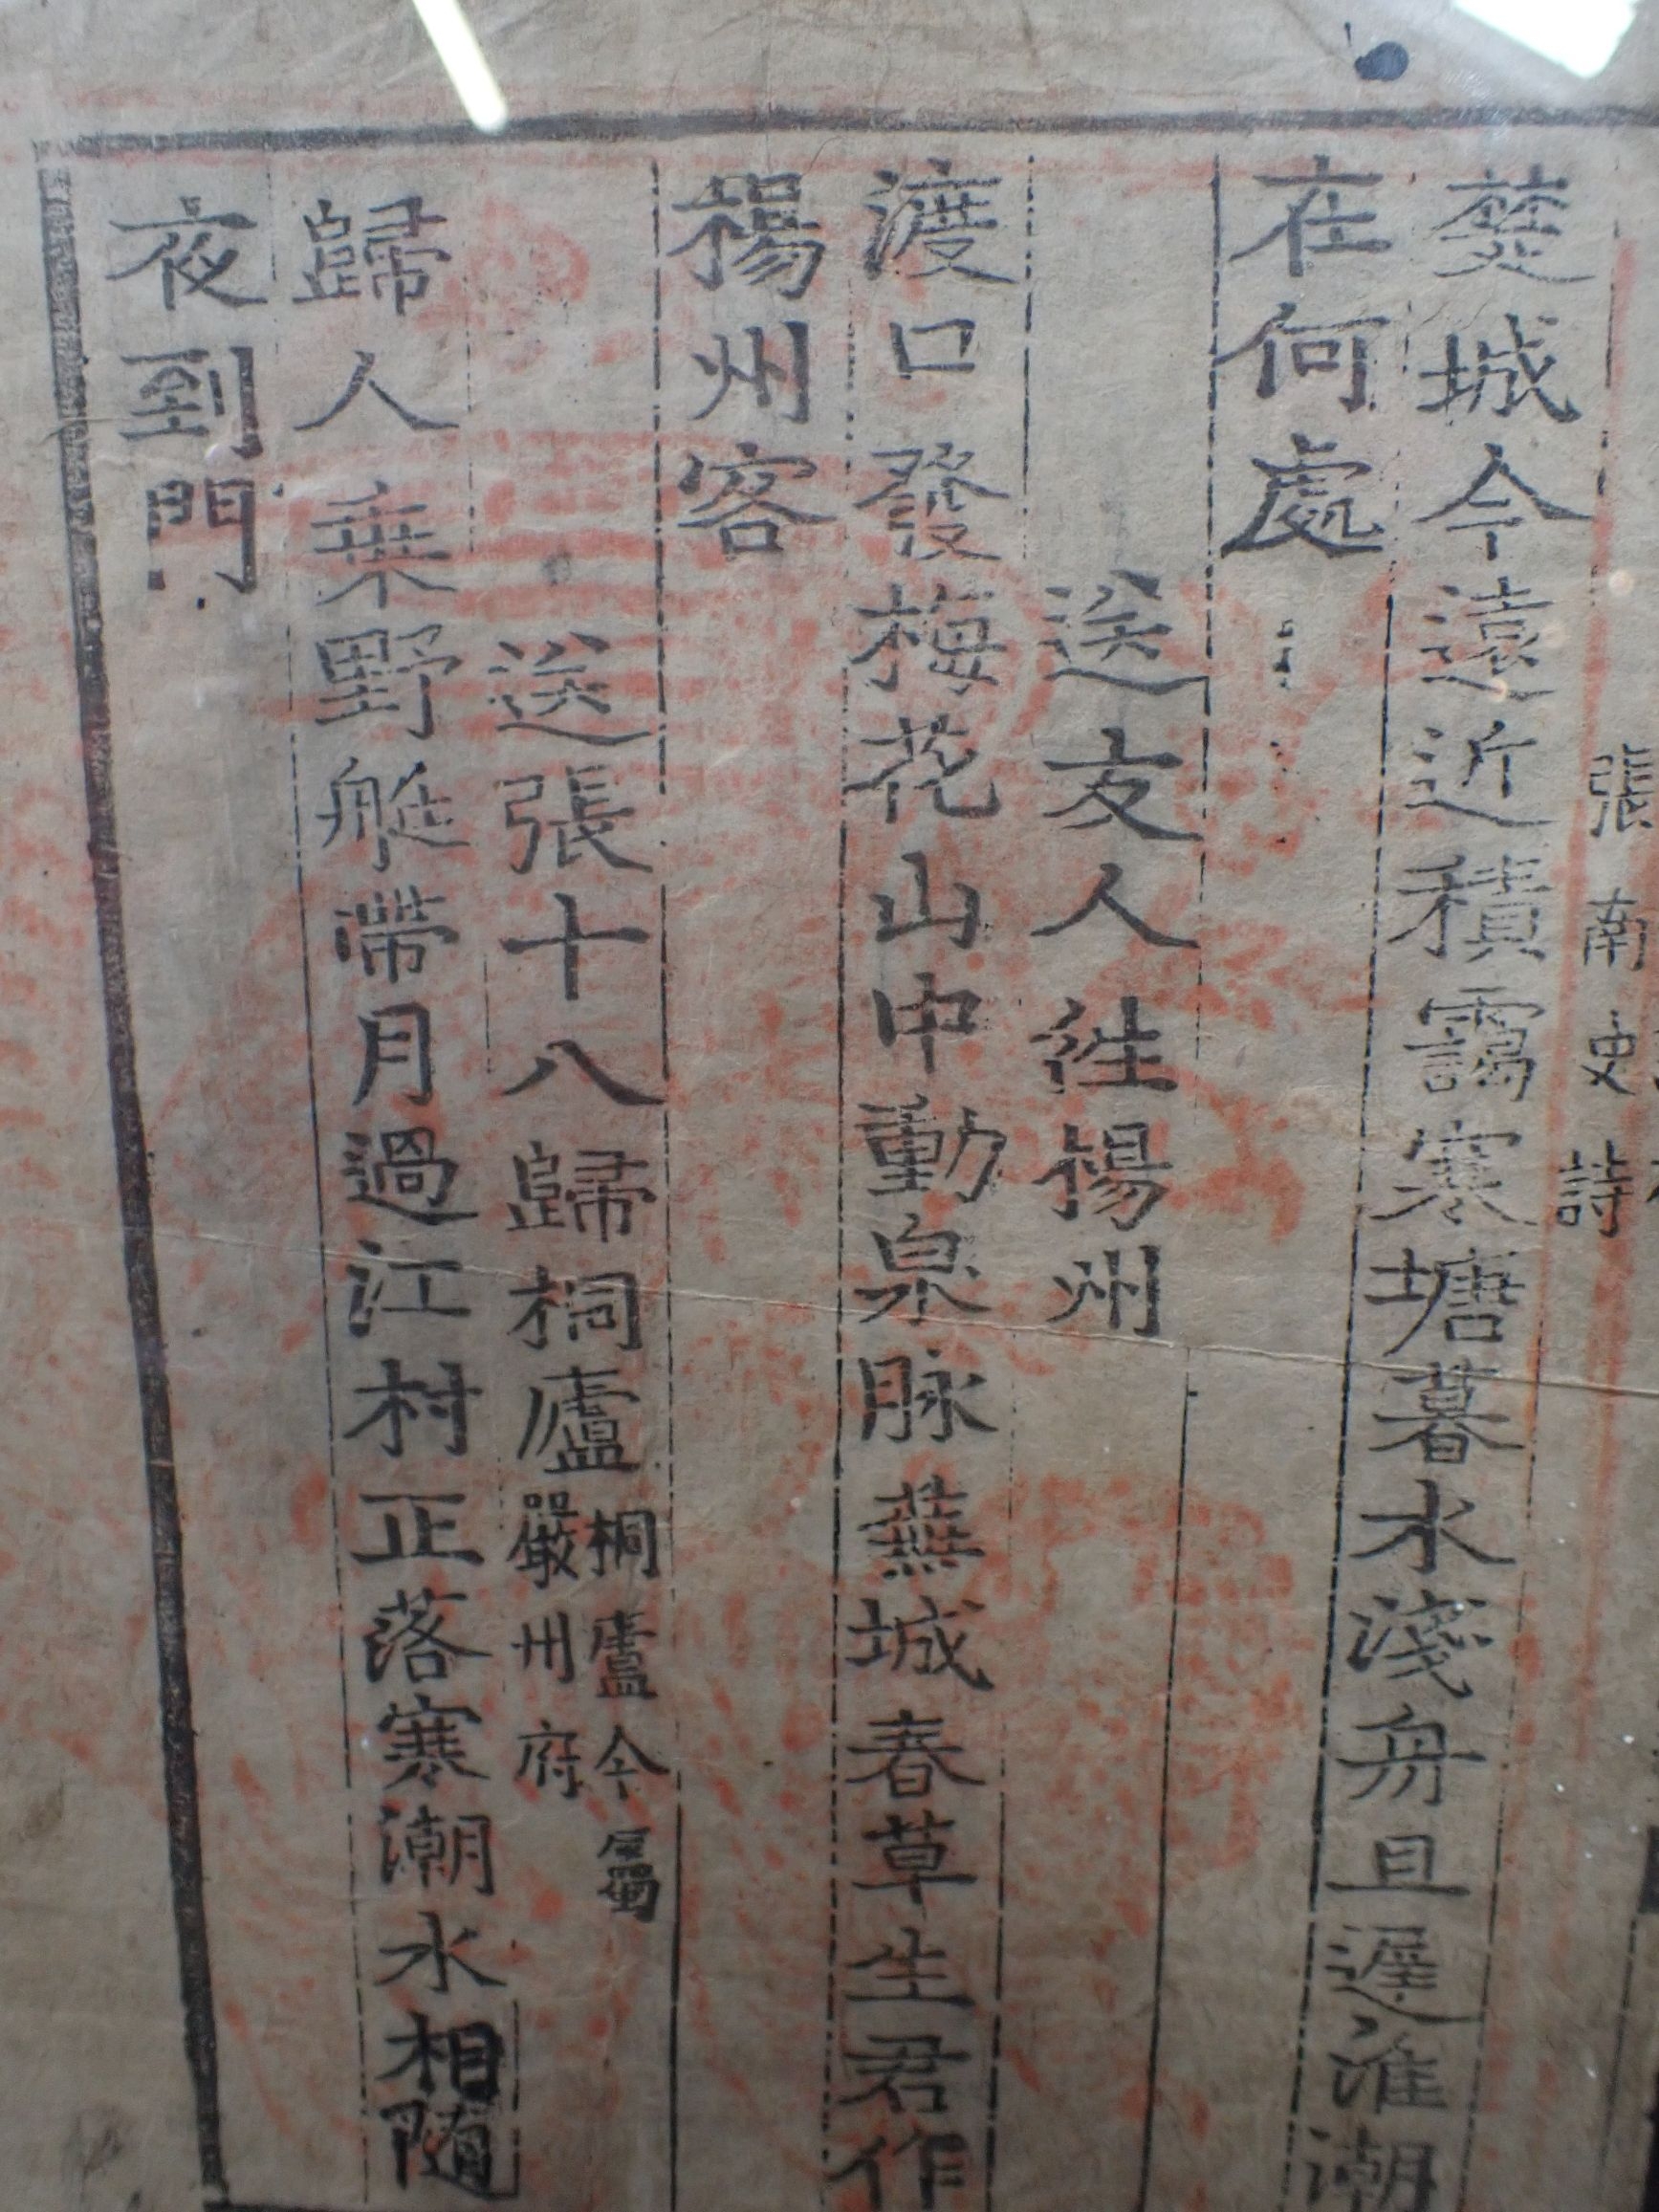 張南史詩
楚城今遠近積靄寒塘暮水淺舟且遲淮潮
在何處
送友人徃揚州
渡口發梅花山中動泉脉蕪城春草生君作
楊州客
送張十八歸桐廬 桐廬今屬嚴州府
歸人乗野艇帶月過江村正落寒潮水相隨
夜到門